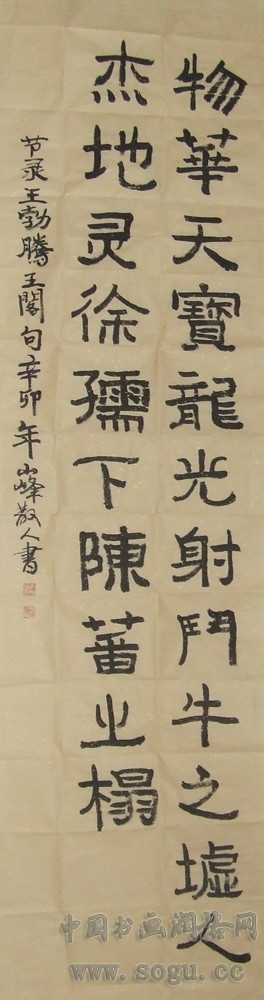 物華天寳龍光射鬥牛之墟人
杰地灵徐孺下陳蕃之榻
节录王勃騰王閣句辛卯年峰散人書
中国书画润格网
www.sogu.cc